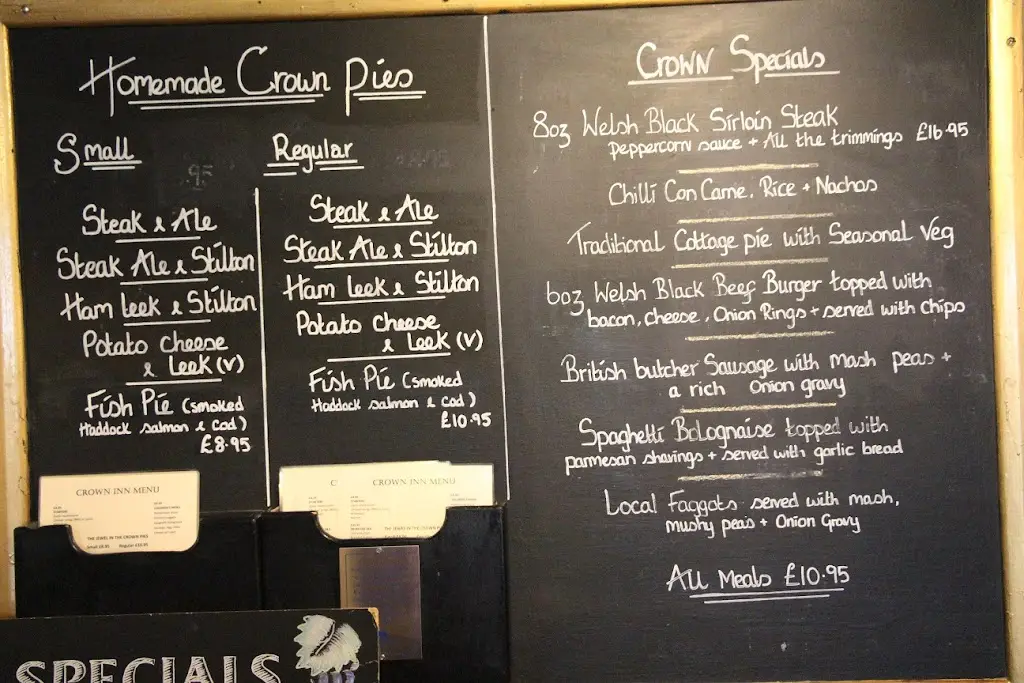 Homemade Crown Pies
Small
.95
Steak & Ale
Steak Ale & Stilton
Ham leek & Stilton
Potato cheese
& Leek (v)
Fish Pie (smoked
Haddock salmon & cod)
£8.95
Regular
Steak & Ale
Steak Ale & Stilton
Ham leek & Stilton
Potato cheese
& Leek (v)
Fish Pie (smoked
Haddock salmon & cod)
£10.95
Crown Specials
8oz Welsh Black Sirloin Steak
peppercorn sauce + All the trimmings £16.95
Chilli Con Carne, Rice + Nachos
Traditional Cottage pie with Seasonal Veg
6oz Welsh Black Beef Burger topped with
bacon, cheese, Onion Rings + served with chips
British butcher Sausage with mash peas +
a rich Onion gravy
Spaghetti Bolognaise topped with
parmesan shavings + served with garlic bread
Local Faggots served with mash,
mushy peas + Onion Gravy
All Meals £10.95
CROWN INN MENU
THE JEWEL IN THE CROWN PIES
Small £8.95 Regular £10.95
C
CROWN INN MENU
SPECIALS